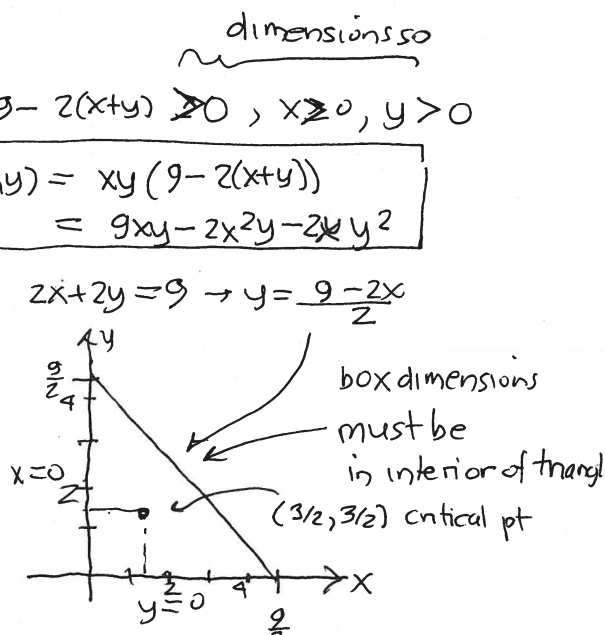 dimensions so
9 - 2(x+y) > 0, x > 0, y > 0
y) = xy(9 - 2(x+y))
= 9xy - 2x²y - 2xy²
2x + 2y = 9 → y = (9 - 2x)/2
y
9/2
4
box dimensions
must be
in interior of triangl
x=0
2
(3/2, 3/2) critical pt
2
4
x
y=0
9